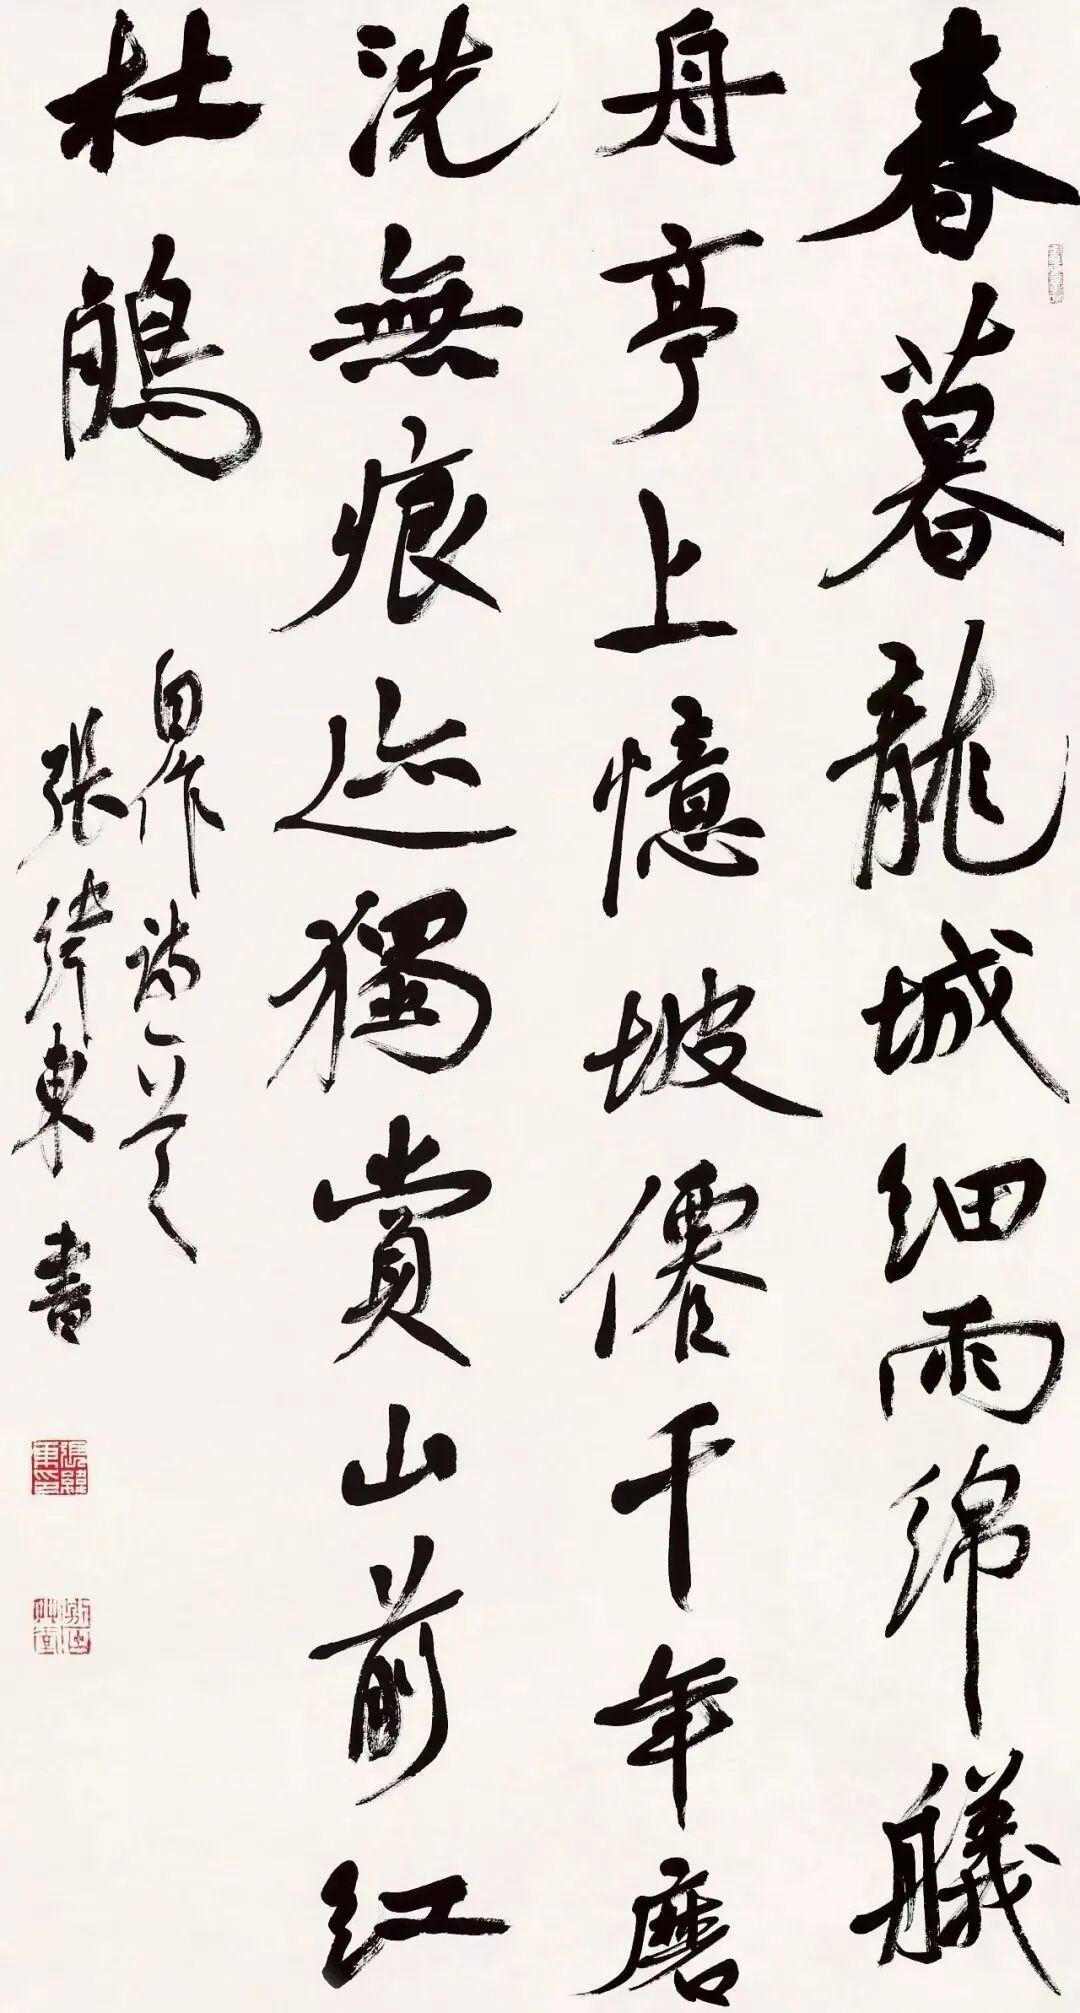 春暮龍城細雨綿艤
舟亭上憶坡僊千年磨
洗無痕迹獨賞山前紅
杜鵑
自作詩一首
張緯東書